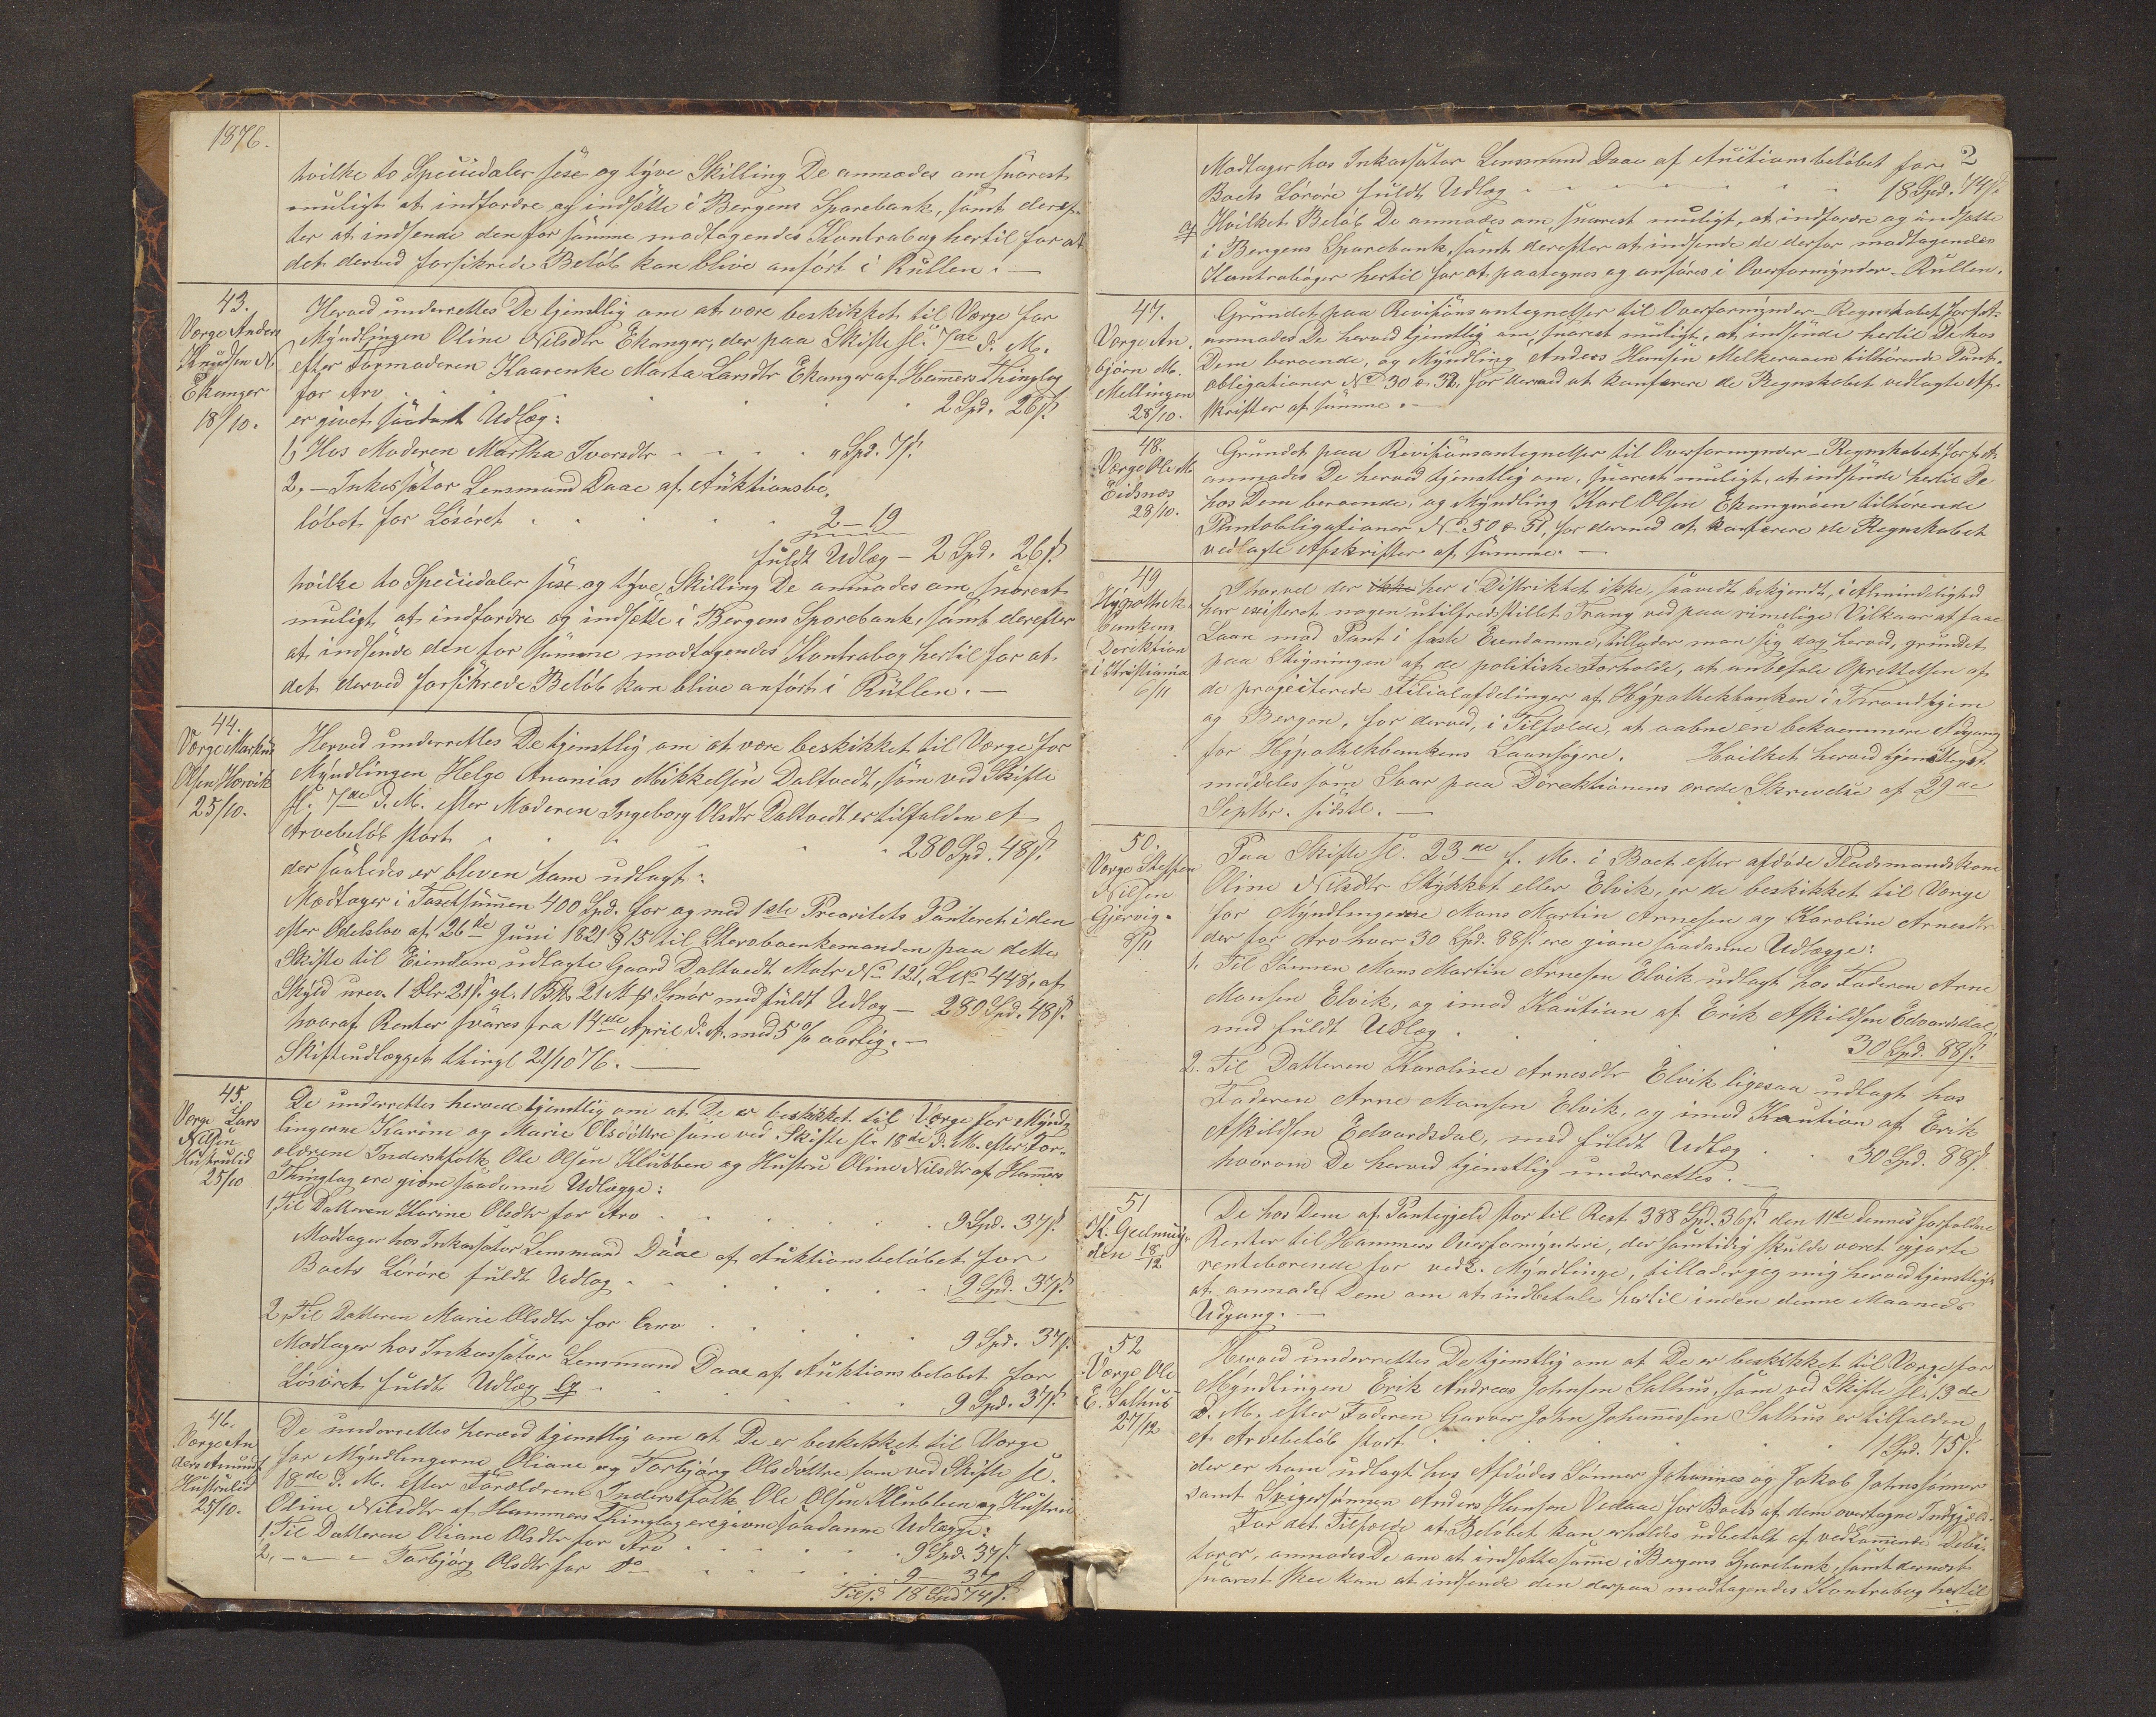 1876.
hvilke to Speciedaler sex og tyve Skilling De anmodes om snarest
muligt at indfordre og indsætte i Bergens Sparebank, samt deref-
ter at indsende den for samme modtagendes Kontrabog hertil for at
det derved forsikrede Beløb kan blive anført i Rullen. —
43.
Værge Anders
Knudsen N.
Ekanger
18/10.
Herved underrettes De tjenstlig om at være beskikket til Værge for
Myndlingen Oline Nilsdtr Ekanger, der paa Skifte sl. 7de d. M.
efter Formoderen Kaarenke Marta Larsdtr Ekanger af Hammers Thinglag
for Arv . . . . 2 Spd. 26 s.
er givet saadant Udlæg:
1, Hos Moderen Martha Iversdtr . . . . " Spd. 7 s.
2, — Inkassator Lensmand Daae af Auktionsbe-
løbet for Løsøret . . . . 2 — 19
fuldt Udlæg — 2 Spd. 26 s.
hvilke to Speciedaler sex og tyve Skilling De anmodes om, snarest
muligt at indfordre og indsætte i Bergens Sparebank, samt derefter
at indsende den for samme modtagendes Kontrabog hertil for at
det derved forsikrede Beløb kan blive anført i Rullen. —
44.
Værge Markus
Olsen Horvik
25/10.
Herved underrettes De tjenstlig om at være beskikket til Værge for
Myndlingen Helge Ananias Mikkelsen Daltvedt, som ved Skifte
sl. 7de d. M. efter Moderen Ingeborg Olsdtr Daltvedt er tilfalden et
Arvebeløb stort . . . . 280 Spd. 48 s.
der saaledes er bleven ham udlagt:
Modtager i Taxtsummen 400 Spd. for og med 1ste Prioritets Panteret i den
efter Odelslov af 26de Juni 1821 § 15 til Stervboenkemanden paa dette
Skifte til Eiendom udlagte Gaard Daltvedt Matr No 121, LNo 448, af
Skyld urev. 1 Dlr 21 s. gl. 1 21 Smør med fuldt Udlæg — 280 Spd. 48 s.
hvoraf Renter svares fra 14de April d. A. med 5 % aarlig. —
Skifteudlægget thingl 21/10 76. —
45.
Værge Lars
Nilsen
Hustrulid
25/10
De underrettes herved tjenstlig om at De er beskikket til Værge for Mynd-
lingerne Karine og Marie Olsdøttre som ved Skifte sl. 18de d. M. efter For-
ældrene Inderstfolk Ole Olsen Klubben og Hustru Oline Nilsdtr af Hammers
Thinglag ere givne saadanne Udlægge:
1, Til Datteren Karine Olsdtr for Arv . . . . 9 Spd. 37 s.
Modtager hos Inkassator Lensmand Daae af Auktionsbeløbet for
Boets Løsøre fuldt Udlæg . . . . 9 Spd. 37 s.
2, Til Datteren Marie Olsdtr for Arv . . . . 9 Spd. 37 s.
Modtager hos Inkassator Lensmand Daae af Auktionsbeløbet for
Løsøret fuldt Udlæg . . . . 9 Spd. 37 s.
46.
Værge An-
ders Amunds
Hustrulid
25/10.
De underrettes herved tjenstlig om at De er beskikket til Værge
for Myndlingerne Oliane og Torbjørg Olsdøttre som ved Skifte sl.
18de d. M. efter Forældrene Inderstfolk Ole Olsen Klubben og Hustru
Oline Nilsdtr af Hammers Thinglag ere givne saadanne Udlægge:
1, Til Datteren Oliane Olsdtr for Arv . . . . 9 Spd. 37 s.
2, — — — Torbjørg Olsdtr for Do . . . . 9 37
Tils. 18 Spd 74 s.
2
Modtager hos Inkassator Lensmand Daae af Auctionsbeløbet for
Boets Løsøre fuldt Udlæg . . . . 18 Spd. 74 s.
Hvilket Beløb De anmodes om, snarest muligt, at indfordre og indsætte
i Bergens Sparebank, samt derefter at indsende de derfor modtagendes
Kontrabøger hertil for at paategnes og anføres i Overformynder-Rullen.
47.
Værge An-
bjørn M.
Mellingen
28/10.
Grundet paa Revisionsantegnelser til Overformynder-Regnskabet for f. A.
anmodes De herved tjenstlig om, snarest muligt, at indsende hertil De hos
Dem beroende, og Myndling Anders Hansen Melkeraaen tilhørende Pant-
obligationer No 30 & 32, for derved at konferere de Regnskabet vedlagte Af-
skrifter af samme. —
48.
Værge Ole M.
Eidsnæs
28/10.
Grundet paa Revisionsantegnelser til Overformynder-Regnskabet for f. A.
anmodes De herved tjenstlig om, snarest muligt, at indsende hertil De
hos Dem beroende, og Myndling Karl Olsen Ekangerøen tilhørende
Pantobligationer No 50 & 51, for dermed at konferere de Regnskabet
vedlagte Afskrifter af samme. —
49
Hypothek-
bankens
Derektion
i Kristiania
6/11
Ihvorvel der ikke her i Distriktet ikke, saavidt bekjendt, i Almindelighed
har existeret nogen utilfredsstillet Trang ved paa rimelige Vilkaar at faae
Laan mod Pant i faste Eiendomme, tillader man sig dog herved, grundet
paa Stigningen af de politiske Forholde, at anbefale Oprettelsen af
de projecterede Filialafdelinger af Hypothekbanken i Throndhjem
og Bergen, for derved, i Tilfælde, at aabne en bekvemmere Adgang
for Hypothekbankens Laansøgere. Hvilket herved tjenstligst
meddeles som Svar paa Direktionens ærede Skrivelse af 29de
Septbr. sidstl. —
50.
Værge Steffen
Nilsen
Gjervig.
8/11
Paa Skifte sl. 23de f. M. i Boet efter afdøde Pladsmandskone
Oline Nilsdtr Stykket eller Elvik, er de beskikket til Værge
for Myndlingerne Mons Martin Arnesen og Karoline Arnesdtr
der for Arv hver 30 Spd. 88 s. ere givne saadanne Udlægge:
1. Til Sønnen Mons Martin Arnesen Elvik udlagt hos Faderen Arne
Monsen Elvik, og imod Kaution af Erik Askildsen Edvardsdal,
med fuldt Udlæg . . . . 30 Spd. 88 s.
2. Til Datteren Karoline Arnesdtr Elvik ligesaa udlagt hos
Faderen Arne Monsen Elvik, og imod Kaution af Erik
Askildsen Edvardsdal, med fuldt Udlæg . . 30 Spd. 88 s.
hvorom De herved tjenstlig underrettes. —
51
18/12
De hos Dem af Pantegjeld stor til Rest 388 Spd. 36 s. den 11te dennes forfaldne
Renter til Hammers Overformynderi, der samtidig skulde været gjorte
rentebærende for vedk. Myndlinge, tillader jeg mig herved tjenstligst
at anmode Dem om at indbetale hertil inden denne Maaneds
Udgang. —
52
Værge Ole
E. Salhus
27/12
Herved underrettes De tjenstlig om at De er beskikket til Værge for
Myndlingen Erik Andreas Johnsen Salhus, som ved Skifte sl. 13de
d. M. efter Faderen Garver John Johannessen Salhus er tilfalden
et Arvebeløb stort . . . . 1 Spd. 75 s.
der er ham udlagt hos Afdødes Sønner Johannes og Jakob Johnssønner
samt Svigersønnen Anders Hansen Vedaae for Boets af dem overtagne Indgjæld.
For det Tilfælde at Beløbet kan erholdes udbetalt af vedkommende Debi-
torer, anmodes De om at indsætte samme i Bergens Sparebank, samt dernest
snarest skee kan at indsende den derpaa modtagendes Kontrabog hertil